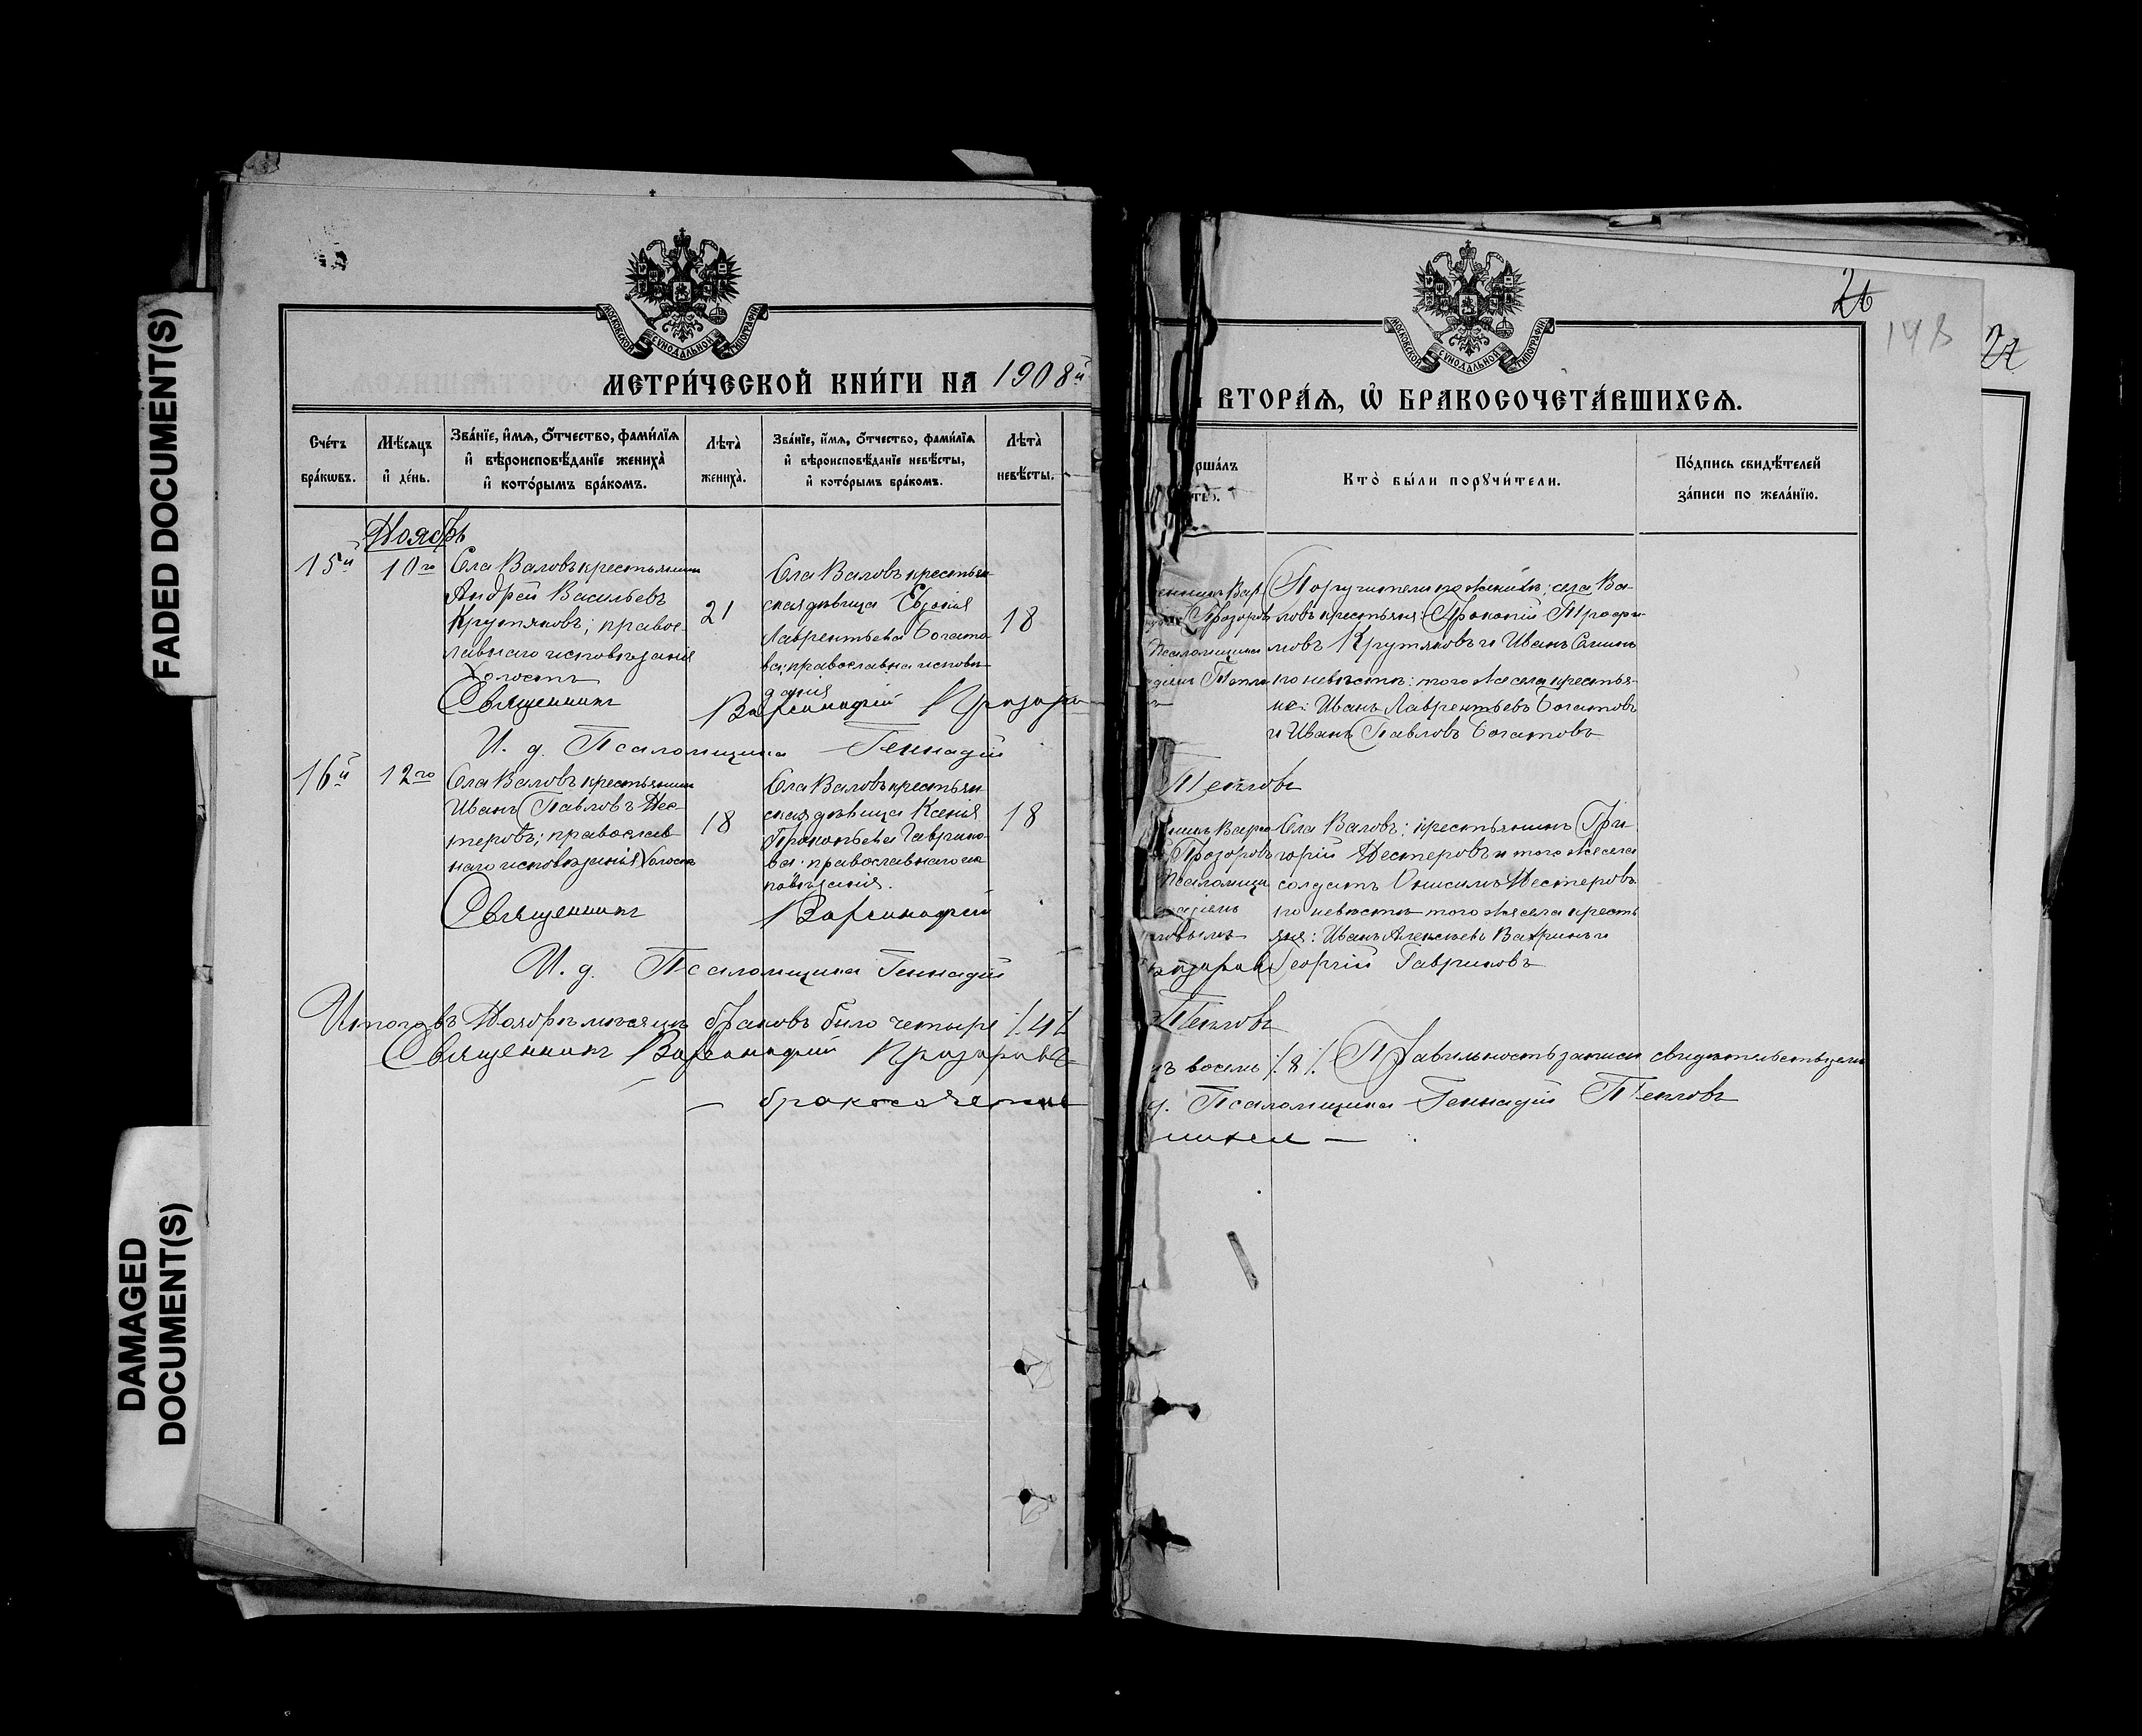 FADED DOCUMENT(S)
DAMAGED
DOCUMENT(S)
МОСКОВСКОЙ СѴНОДАЛЬНОЙ ТИПОГРАФІИ
МЕТРИ́ЧЕСКОЙ КНИ́ГИ НА 1908й
Сче́тъ
бра́кѡвъ.
Мѣ́сяцъ
и҆ де́нь.
Зва́нїе, и҆́мѧ, ѻ҆́тчество, фами́лїѧ
и҆ вѣроисповѣ́данїе жениха̀
и҆ кото́рымъ бра́комъ.
Лѣта̀
жениха̀.
Зва́нїе, и҆́мѧ, ѻ҆́тчество, фами́лїѧ
и҆ вѣроисповѣ́данїе невѣ́сты,
и҆ кото́рымъ бра́комъ.
Лѣта̀
невѣ́сты.
Ноябрь
15й
10го
Села Валовъ крестьянинъ
Андрей Васильевъ
Крутяковъ; правос-
лавнаго исповѣданія
Холостъ
21
Села Валовъ крестьян-
ская дѣвица
Лаврентьева Богато
ва; православна исповѣ
данія
18
Священникъ Варсонофій Прозоро
И. д. Псаломщика Геннадій
16й
12го
Села Валовъ крестьянинъ
Иванъ Павловъ Нес-
теровъ; православ-
наго исповѣданія Холостъ
18
Села Валовъ крестьян
ская дѣвица Ксенія
Прокопьева Гаврико-
ва; православнаго ис
повѣданія.
18
Священникъ Варсонофій
И. д. Псаломщика Геннадій
Итого въ Ноябрѣ мѣсяцѣ браковъ было четыре /.4./
Священникъ Варсонофій Прозоровъ
— бракосочетав
МОСКОВСКОЙ СѴНОДАЛЬНОЙ ТИПОГРАФІИ
26
148
ВТОРА́Ѧ, Ѡ҆ БРАКОСОЧЕТА́ВШИХСѦ.
рша́лъ
Кто̀ бы́ли порꙋчи́тели.
По́дпись свидѣ́телей
за́писи по жела́нїю.
Поручители по женихѣ: села Ва-
Прозоров
ловъ крестьяне: Прокопій Трофи
Псаломщика
мовъ Крутяковъ и Иванъ
Тепло
по невѣстѣ: того же села крестья-
не: Иванъ Лаврентьевъ Богатовъ
и Иванъ Павловъ Богатовъ
Тепловъ
Села Валовъ: крестьянинъ Гри
Прозоровъ
горій Нестеровъ и того же села
Псаломщи
солдатъ Онисимъ Нестеровъ
по невѣстѣ того же села кресть
яне: Иванъ Алексѣевъ Вахринъ и
Георгій Гавриковъ
Тепловъ
ъ восемь /.8./. Правильность записи свидѣтельствуемъ
д. Псаломщика Геннадій Тепловъ
шихся —